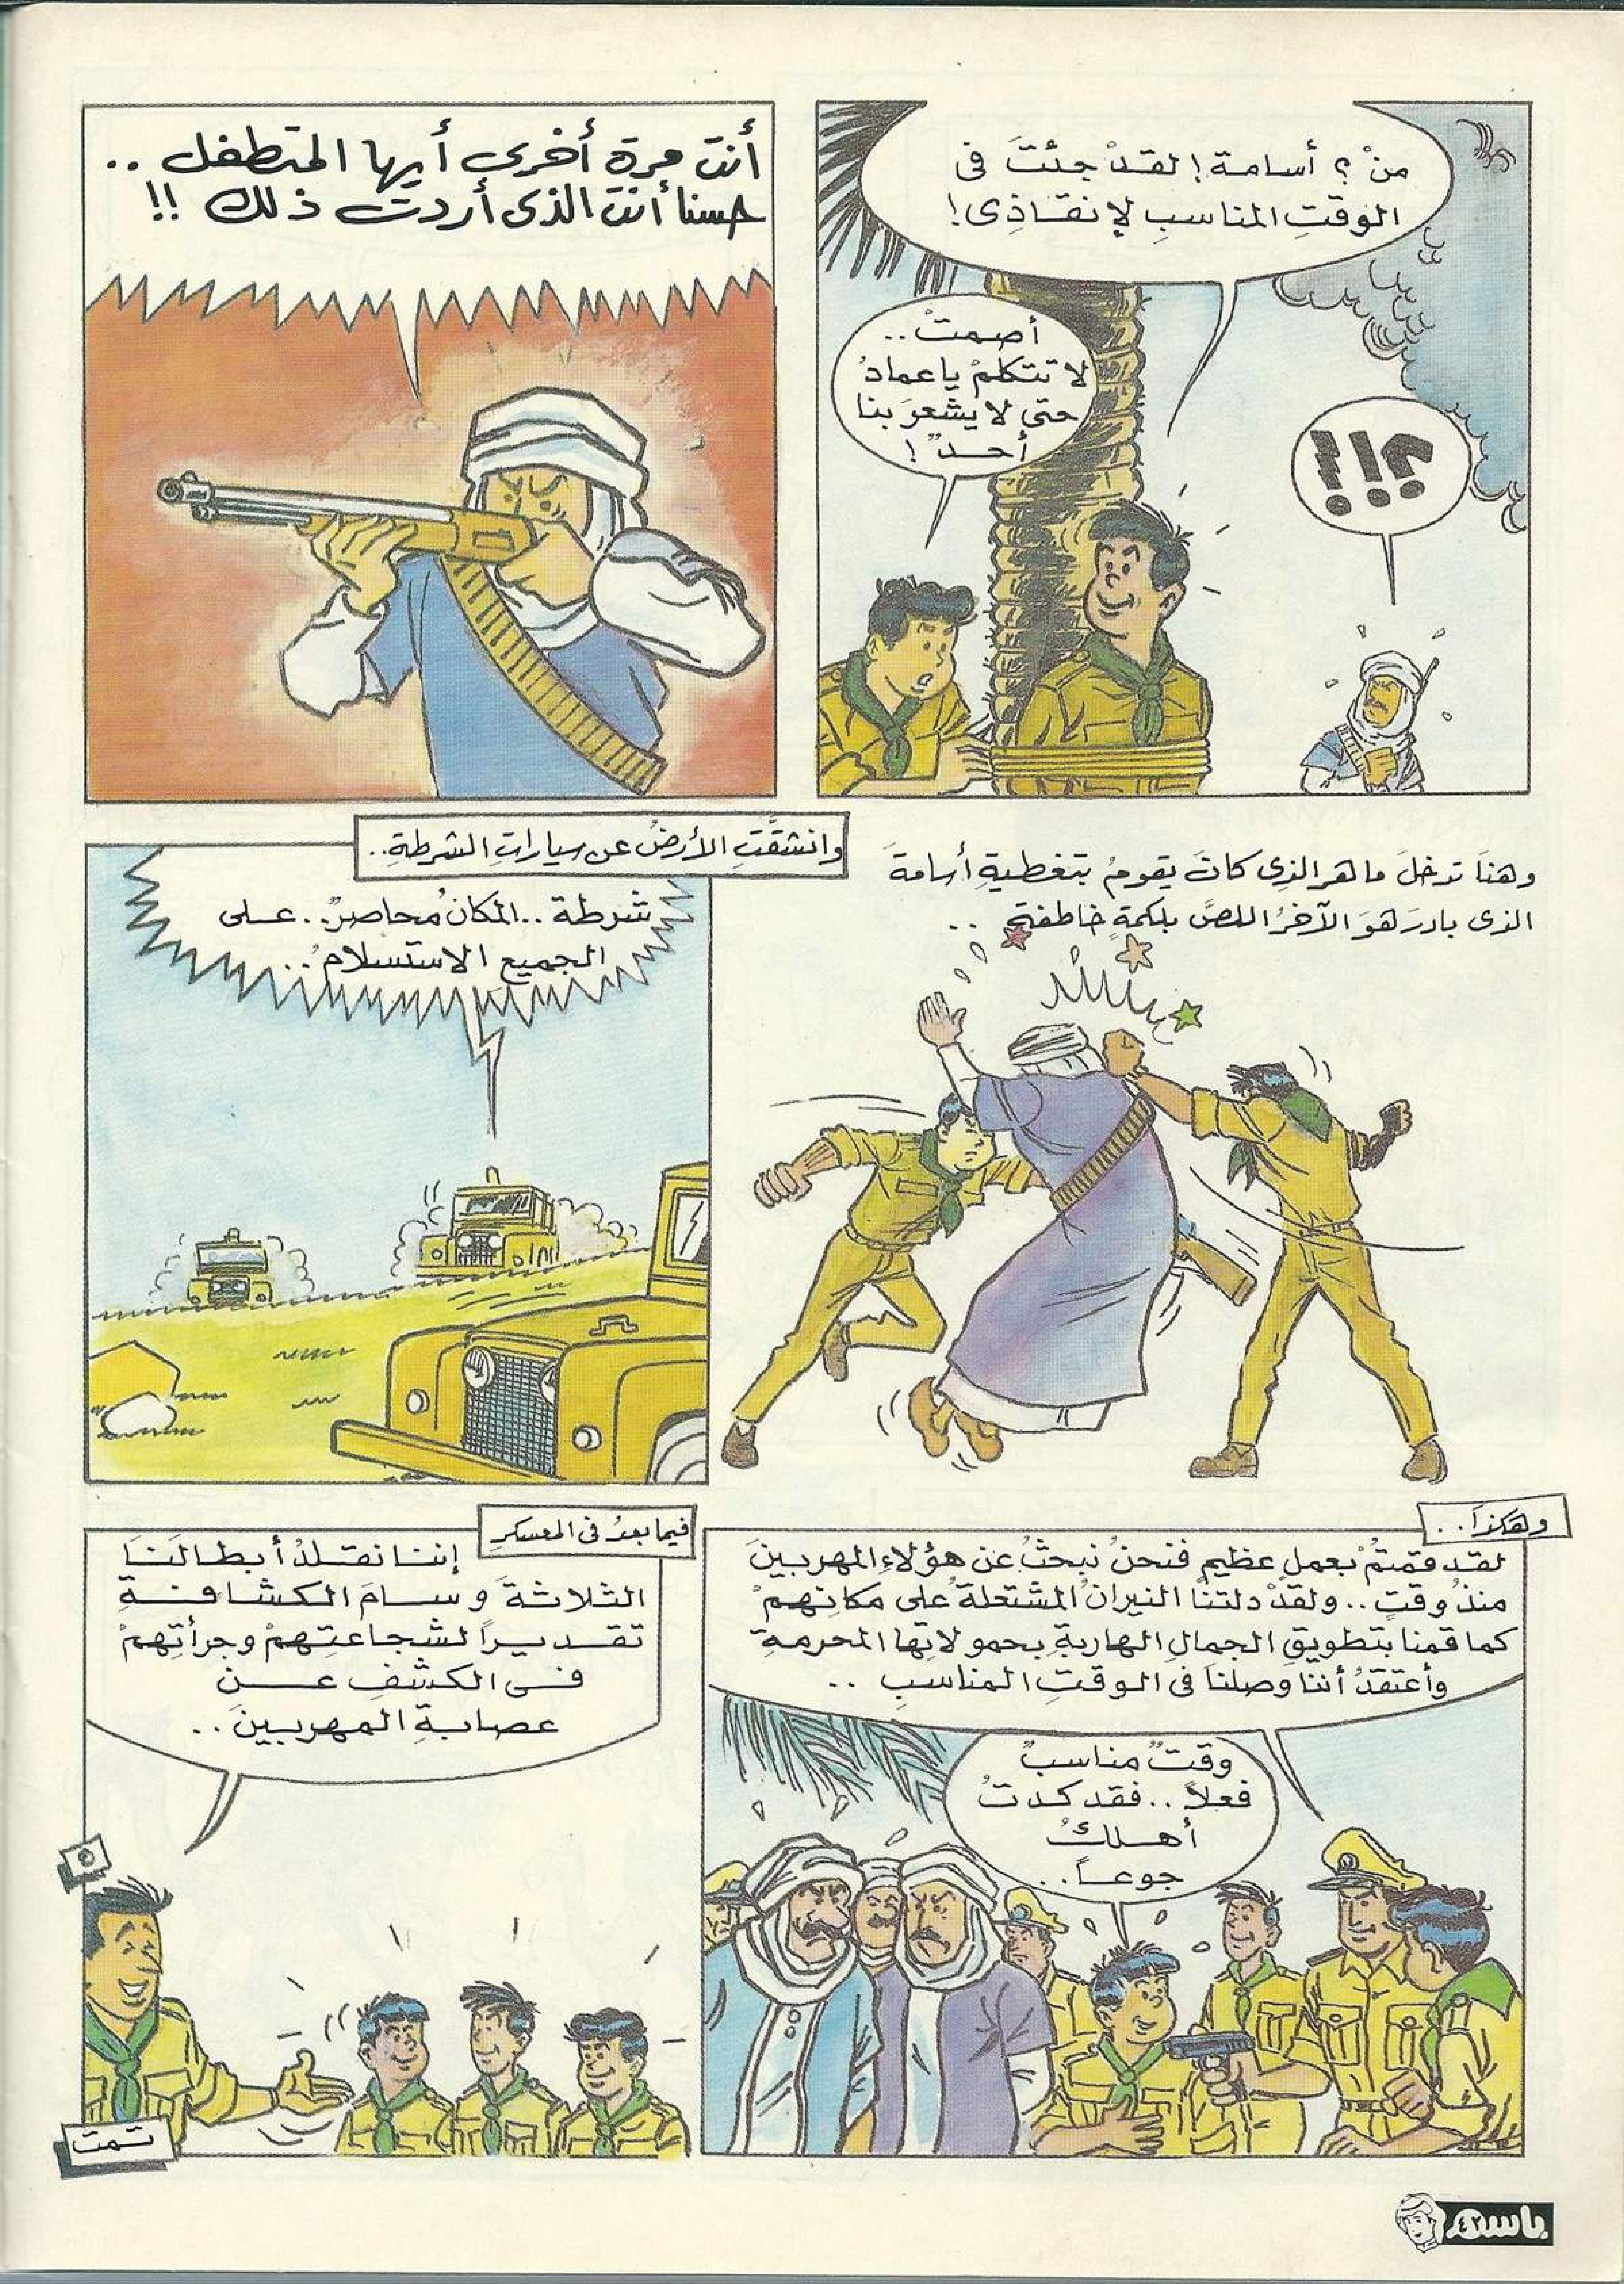 منْ ؟ أسامة ! لقدْ جئتَ فى
الوقتِ المناسبِ لإنقاذِى !
أصمتْ ..
لا تتكلمْ ياعمادُ
حتى لا يشعرَ بنا
أحدٌ !
؟!؟!
أنت مرة أخرى أيها المتطفل ..
حسنا أنت الذى أردت ذلك !!
وهنَا تدخلَ ماهر الذِى كانَ يقومُ بتغطيةِ أسامةَ
الذى بادرَ هوَ الآخرُ اللصَّ بلكمةٍ خاطفةٍ ..
وانشقَّتِ الأرضُ عن سياراتِ الشرطةِ ..
شرطة .. المكانُ محاصرٌ .. على
الجميعِ الاستسلامُ ..
وهكذَا ..
لقد قمتمْ بعملٍ عظيمٍ فنحنُ نبحثُ عن هؤلاءِ المهربينَ
منذُ وقتٍ .. ولقدْ دلتنَا النيرانُ المشتعلةُ على مكانهمْ
كما قمنا بتطويقِ الجمالِ الهاربةِ بحمولاتِها المحرمةِ
وأعتقدُ أننَا وصلنَا فى الوقتِ المناسبِ ..
وقتٌ مناسبٌ
فعلاً .. فقد كدتُ
أهلكُ
جوعاً ..
فيما بعدُ فى المعسكرِ
إننا نقلدُ أبطالَنَا
الثلاثةَ وسامَ الكشافةِ
تقديراً لشجاعتِهمْ وجرأتِهمْ
فى الكشفِ عنْ
عصابةِ المهربينَ ..
تمت
باسم
٤٢